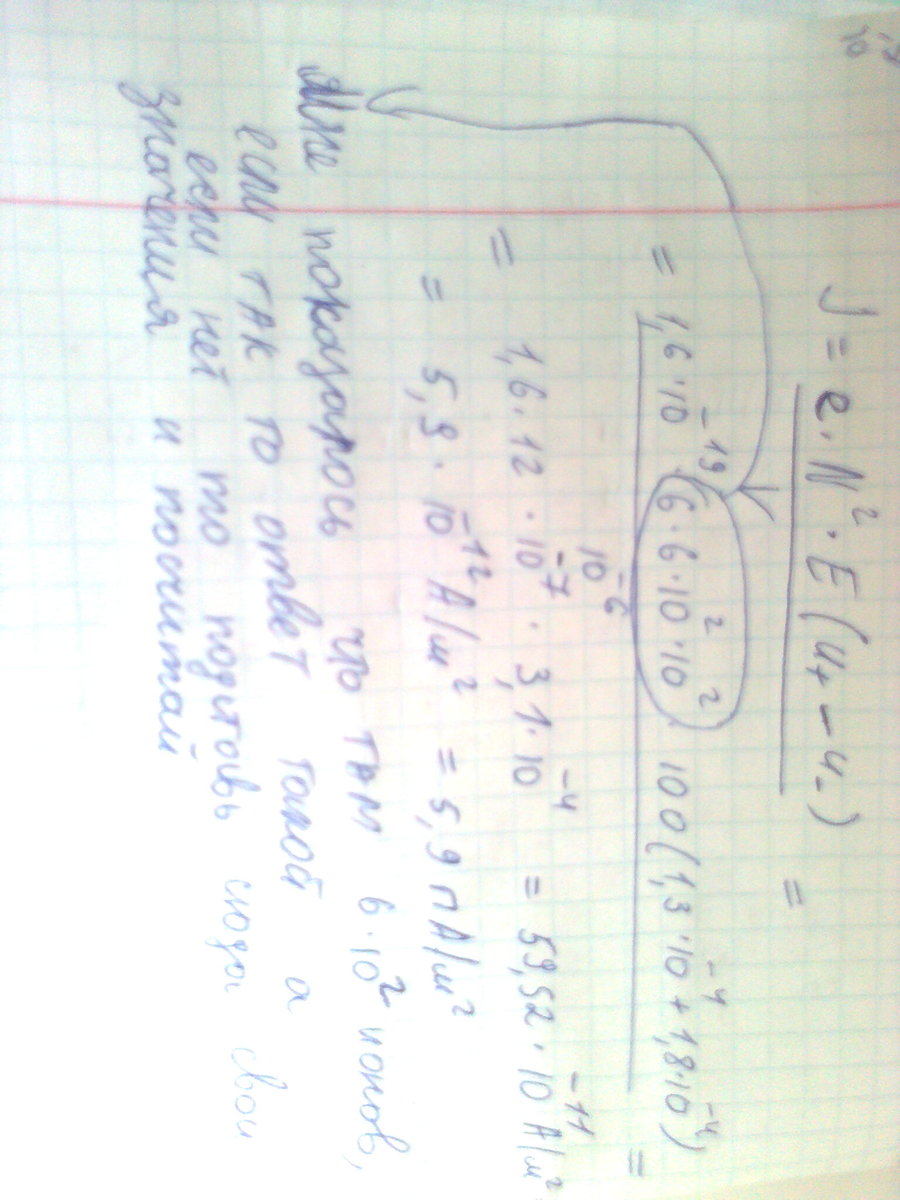 J = e · N² · E (u₊ – u₋) =
= 1,6·10⁻¹⁹ · 6·6·10²·10² · 100 (1,3·10⁻⁴ + 1,8·10⁻⁴) =
10⁻⁶
= 1,6 · 12 · 10⁻⁷ · 3,1·10⁻⁴ = 59,52 · 10⁻¹¹ А/м² =
= 5,9 · 10⁻¹² А/м² = 5,9 пА/м²
Мне показалось что там 6·10² ионов,
если так то ответ такой а
если нет то подставь сюда свои
значения и посчитай